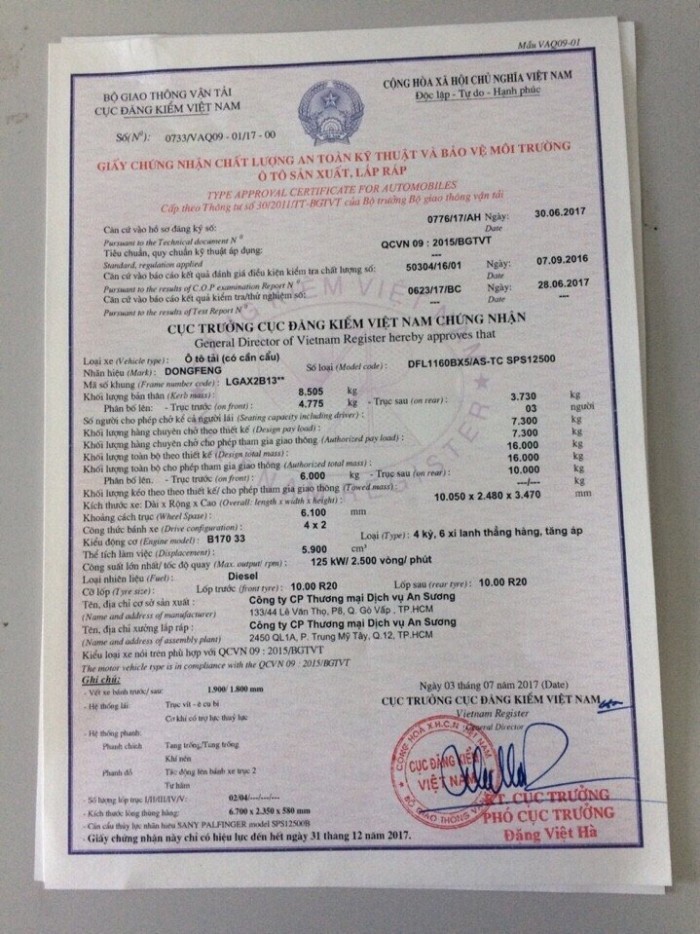 Mẫu VAQ09-01
BỘ GIAO THÔNG VẬN TẢI
CỤC ĐĂNG KIỂM VIỆT NAM
CỘNG HÒA XÃ HỘI CHỦ NGHĨA VIỆT NAM
Độc lập - Tự do - Hạnh phúc
Số(N°): 0733/VAQ09 - 01/17 - 00
GIẤY CHỨNG NHẬN CHẤT LƯỢNG AN TOÀN KỸ THUẬT VÀ BẢO VỆ MÔI TRƯỜNG
Ô TÔ SẢN XUẤT, LẮP RÁP
TYPE APPROVAL CERTIFICATE FOR AUTOMOBILES
Cấp theo Thông tư số 30/2011/TT-BGTVT của Bộ trưởng Bộ giao thông vận tải
Căn cứ vào hồ sơ đăng ký số: 0776/17/AH Ngày: 30.06.2017
Pursuant to the Technical document N° Date
Tiêu chuẩn, quy chuẩn kỹ thuật áp dụng: QCVN 09 : 2015/BGTVT
Standard, regulation applied ---
Căn cứ vào báo cáo kết quả đánh giá điều kiện kiểm tra chất lượng số: 50304/16/01 Ngày: 07.09.2016
Pursuant to the results of C.O.P examination Report N° --- Date
Căn cứ vào báo cáo kết quả kiểm tra/thử nghiệm số: 0623/17/BC Ngày: 28.06.2017
Pursuant to the results of Test Report N° --- Date ---
CỤC TRƯỞNG CỤC ĐĂNG KIỂM VIỆT NAM CHỨNG NHẬN
General Director of Vietnam Register hereby approves that
Loại xe (Vehicle type): Ô tô tải (có cần cẩu)
Nhãn hiệu (Mark): DONGFENG Số loại (Model code): DFL1160BX5/AS-TC SPS12500
Mã số khung (Frame number code): LGAX2B13**
Khối lượng bản thân (Kerb mass): 8.505 kg
Phân bố lên: - Trục trước (on front): 4.775 kg - Trục sau (on rear): 3.730 kg
Số người cho phép chở kể cả người lái (Seating capacity including driver): 03 người
Khối lượng hàng chuyên chở theo thiết kế (Design pay load): 7.300 kg
Khối lượng hàng chuyên chở cho phép tham gia giao thông (Authorized pay load): 7.300 kg
Khối lượng toàn bộ theo thiết kế (Design total mass): 16.000 kg
Khối lượng toàn bộ cho phép tham gia giao thông (Authorized total mass): 16.000 kg
Phân bố lên: - Trục trước (on front): 6.000 kg - Trục sau (on rear): 10.000 kg
Khối lượng kéo theo theo thiết kế/ cho phép tham gia giao thông (Towed mass): ---/--- kg
Kích thước xe: Dài x Rộng x Cao (Overall: length x width x height): 10.050 x 2.480 x 3.470 mm
Khoảng cách trục (Wheel Space): 6.100 mm
Công thức bánh xe (Drive configuration): 4 x 2
Kiểu động cơ (Engine model): B170 33 Loại (Type): 4 kỳ, 6 xi lanh thẳng hàng, tăng áp
Thể tích làm việc (Displacement): 5.900 cm³
Công suất lớn nhất/ tốc độ quay (Max. output/ rpm): 125 kW/ 2.500 vòng/ phút
Loại nhiên liệu (Fuel): Diesel
Cỡ lốp (Tyre size): Lốp trước (front tyre): 10.00 R20 Lốp sau (rear tyre): 10.00 R20
Tên, địa chỉ cơ sở sản xuất: Công ty CP Thương mại Dịch vụ An Sương
(Name and address of manufacturer) 133/44 Lê Văn Thọ, P8, Q. Gò Vấp , TP.HCM
Tên, địa chỉ xưởng lắp ráp: Công ty CP Thương mại Dịch vụ An Sương
(Name and address of assembly plant) 2450 QL1A, P. Trung Mỹ Tây, Q.12, TP.HCM
Kiểu loại xe nói trên phù hợp với QCVN 09 : 2015/BGTVT
The motor vehicle type is in compliance with the QCVN 09 : 2015/BGTVT
Ghi chú:
- Vết xe bánh trước/ sau: 1.900/ 1.800 mm
- Hệ thống lái: Trục vít - ê cu bi
Cơ khí có trợ lực thuỷ lực
- Hệ thống phanh:
Phanh chính Tang trống/Tang trống
Khí nén
Phanh đỗ Tác động lên bánh xe trục 2
Tự hãm
- Số lượng lốp trục I/II/III/IV/V: 02/04/---/---/---
- Kích thước lòng thùng hàng: 6.700 x 2.350 x 580 mm
- Cần cẩu thủy lực nhãn hiệu SANY PALFINGER model SPS12500B
- Giấy chứng nhận này chỉ có hiệu lực đến hết ngày 31 tháng 12 năm 2017.
Ngày 03 tháng 07 năm 2017 (Date)
CỤC TRƯỞNG CỤC ĐĂNG KIỂM VIỆT NAM
Vietnam Register
General Director
CỘNG HÒA X.H.C.N VIỆT NAM
CỤC ĐĂNG KIỂM
VIỆT NAM
BỘ GIAO THÔNG
KT. CỤC TRƯỞNG
PHÓ CỤC TRƯỞNG
Đặng Việt Hà